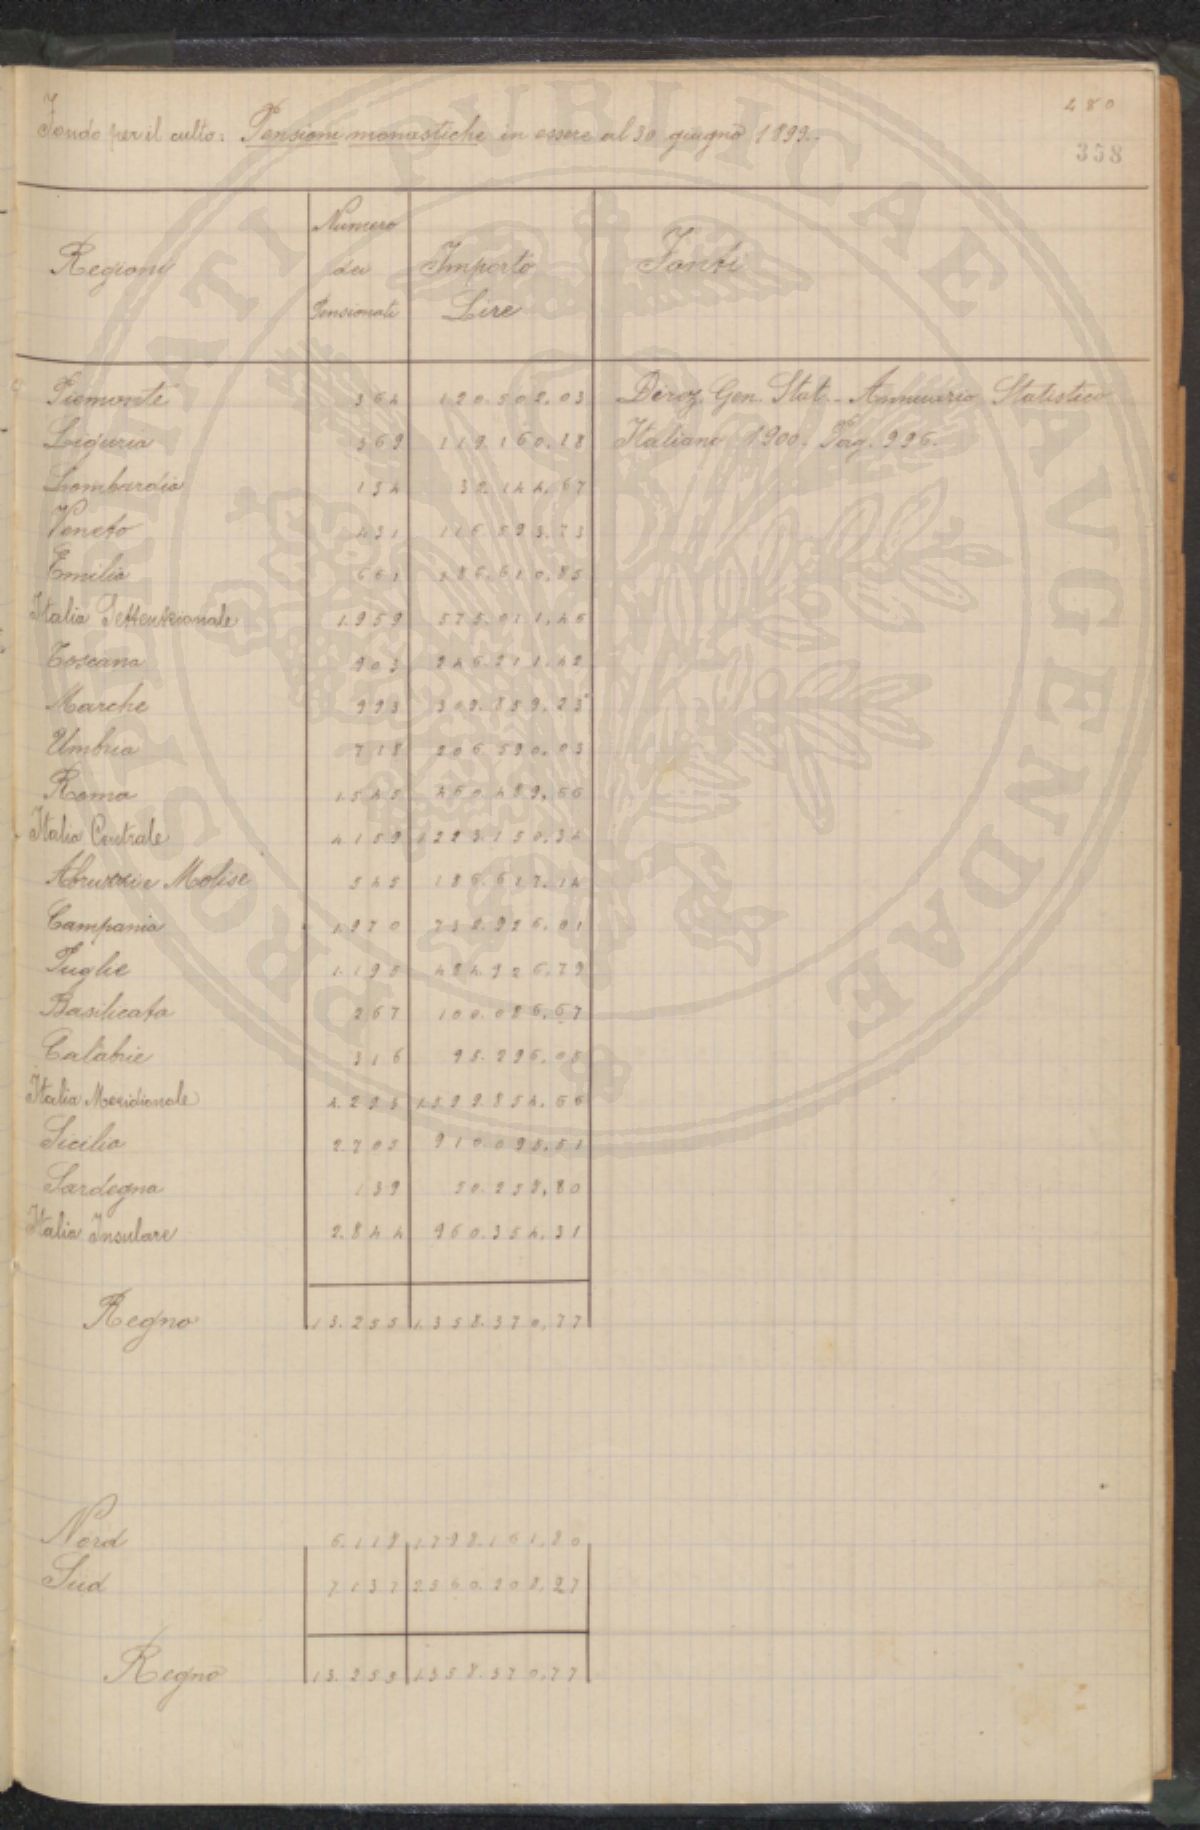 480
Fondo per il culto: Pensioni monastiche in essere al 30 giugno 1899.
358
Regioni
Numero dei Pensionati
Importo Lire
Fonti
Piemonte 364 120.502,03 Direz. Gen. Stat. - Annuario Statistico
Liguria 369 119.160,18 Italiano 1900. Pag. 996.
Lombardia 134 32.144,67
Veneto 431 116.593,73
Emilia 661 186.610,85
Italia Settentrionale 1.959 575.011,46
Toscana 903 246.211,42
Marche 993 309.859,23
Umbria 718 206.590,03
Roma 1.545 460.489,66
Italia Centrale 4159 1223.150,34
Abruzzi e Molise 545 186.617,14
Campania 1.970 732.926,01
Puglie 1.195 484.926,79
Basilicata 267 100.086,67
Calabrie 316 95.296,05
Italia Meridionale 4.293 1.599.854,66
Sicilia 2705 910.095,51
Sardegna 139 50.258,80
Italia Insulare 2.844 960.354,31
Regno 13.255 4.358.370,77
Nord 6.118 1798.161,80
Sud 7137 2560.208,97
Regno 13.255 4358.370,77
PROSPERITATI PUBLICAE AVGENDAE